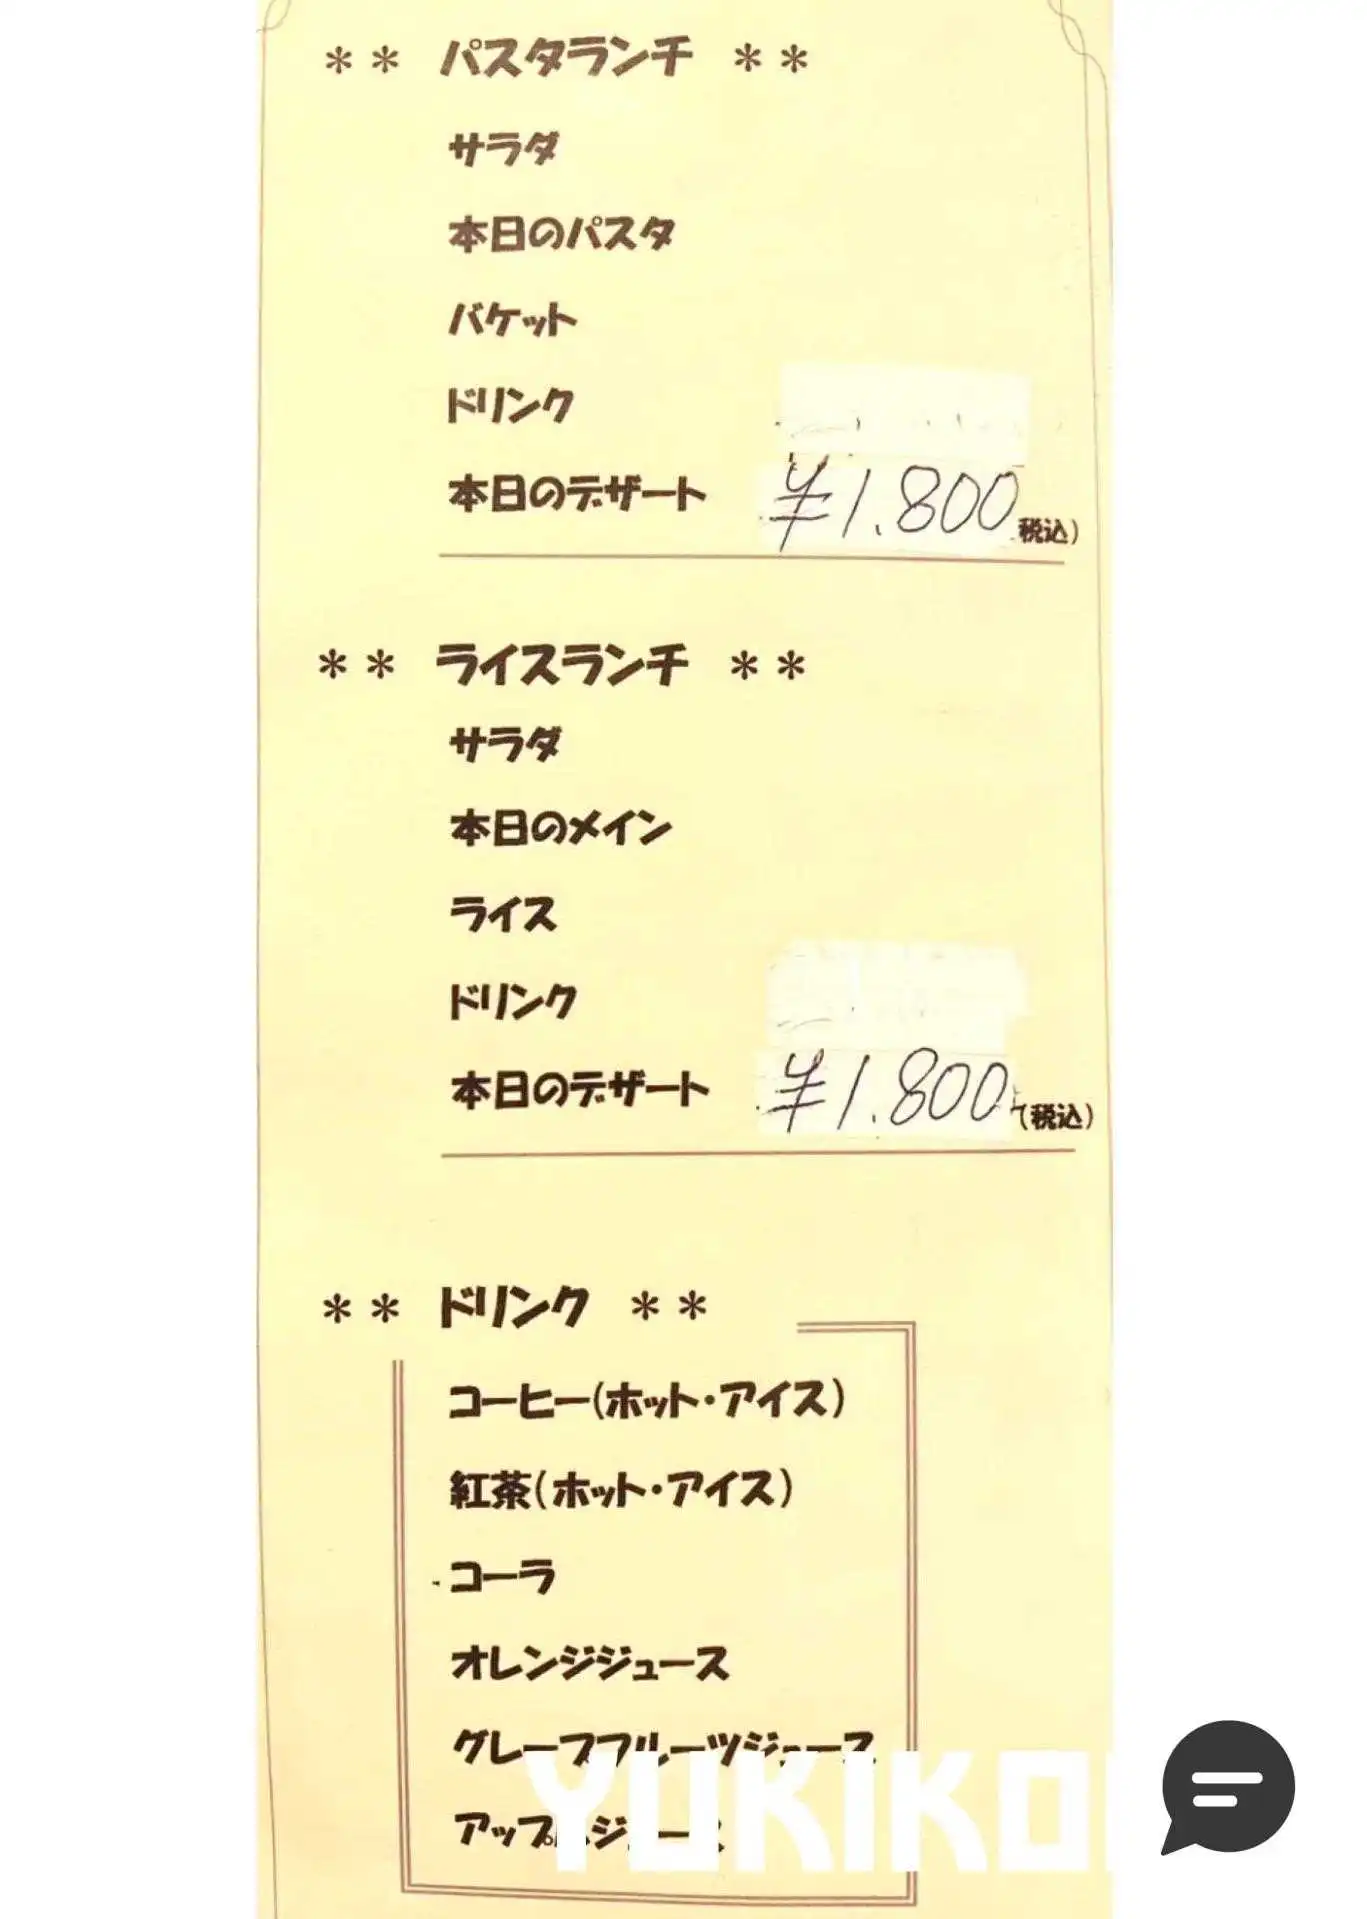 ** パスタランチ **
サラダ
本日のパスタ
バケット
ドリンク
本日のデザート ¥1.800 税込)
** ライスランチ **
サラダ
本日のメイン
ライス
ドリンク
本日のデザート ¥1.800 (税込)
** ドリンク **
コーヒー(ホット・アイス)
紅茶(ホット・アイス)
コーラ
オレンジジュース
グレープフルーツジュース
アップルジュース
YUKIKO